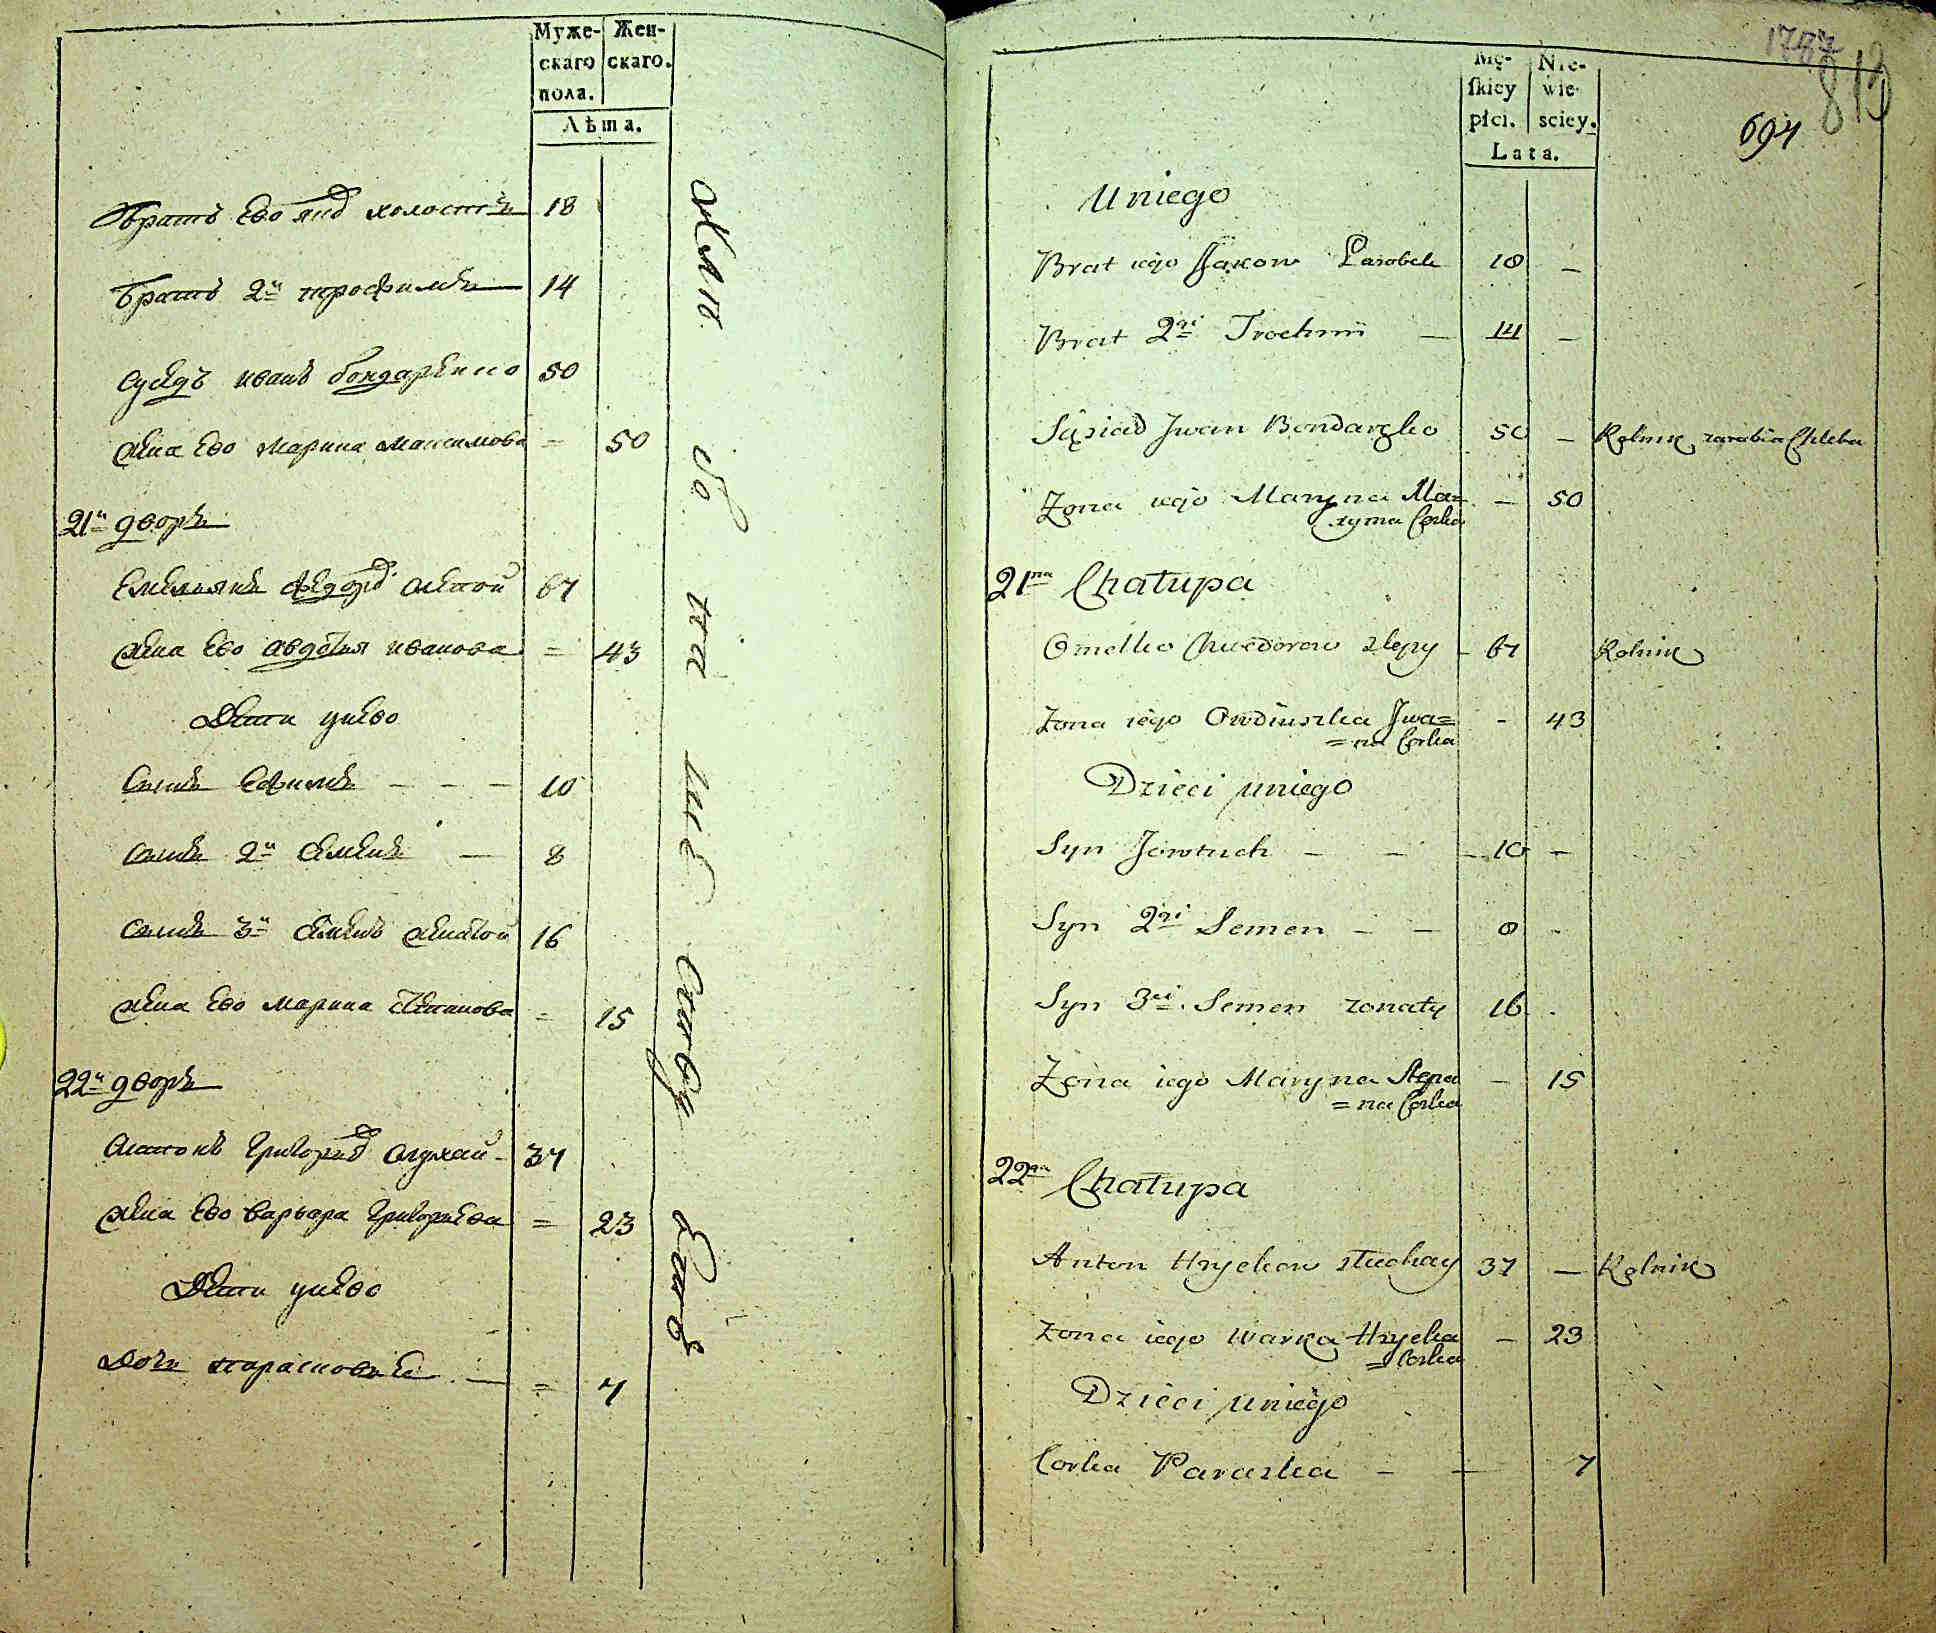 Муже- Жен-
скаго скаго.
пола.
Лѣта.
братъ ево яковъ холостъ 18
братъ 2й трофимъ 14
сусѣдъ иванъ бондаренко 50
жена ево марина максимова = 50
21й дворъ
Емельянъ федоровъ слепой 67
жена ево авдотья иванова = 43
Дети унево
сынъ Ефимъ - - - 10
сынъ 2й семенъ — 8
сынъ 3й семенъ женатой 16
жена ево марина степанова = 15
22й дворъ
антонъ григорьевъ слухай - 37
жена ево варвара григорьева = 23
Дети унево
Дочь парасковья — = 7
1787
813
694
Mę- Nie-
skiey wie-
płci. sciey.
Lata.
Uniego
Brat iego Jakow Parobek 18 —
Brat 2gi Trochim — 14 —
Sąsiad Jwan Bondaręko 50 — Rolnik zarabia Chleba
Zona iego Maryna Ma=
xyma Corka — 50
21na Chałupa
Omelko Chwedorow slepy - 67 Rolnik
Zona iego Owdiuszka Jwa=
=na Corka - 43
Dzieci uniego
Syn Jowtuch — — — 10 —
Syn 2gi Semen — — 8 -
Syn 3ci Semen zonaty 16 -
Zona iego Maryna Stepa
=na Corka — 15
22na Chałupa
Anton Hryckow słuchay 37 — Rolnik
Zona iego Warka Hrycka
=Corka — 23
Dzieci uniego
Corka Paraska — — 7